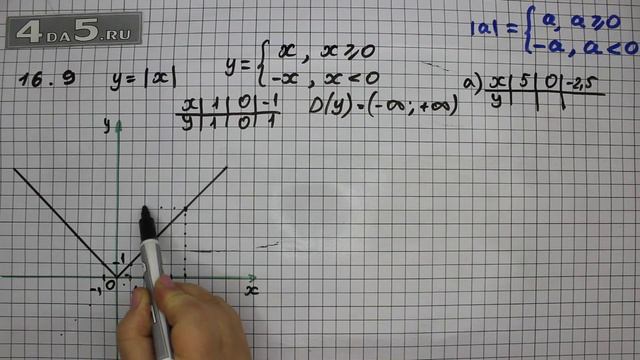 4DA5.RU
|a| = { a, a ⩾ 0
-a, a < 0
16.9 y = |x|
y = { x, x ⩾ 0
-x, x < 0
x | 1 | 0 | -1
y | 1 | 0 | 1
D(y) = (-∞; +∞)
а) x | 5 | 0 | -2,5
y
y
-1
-1 0
x